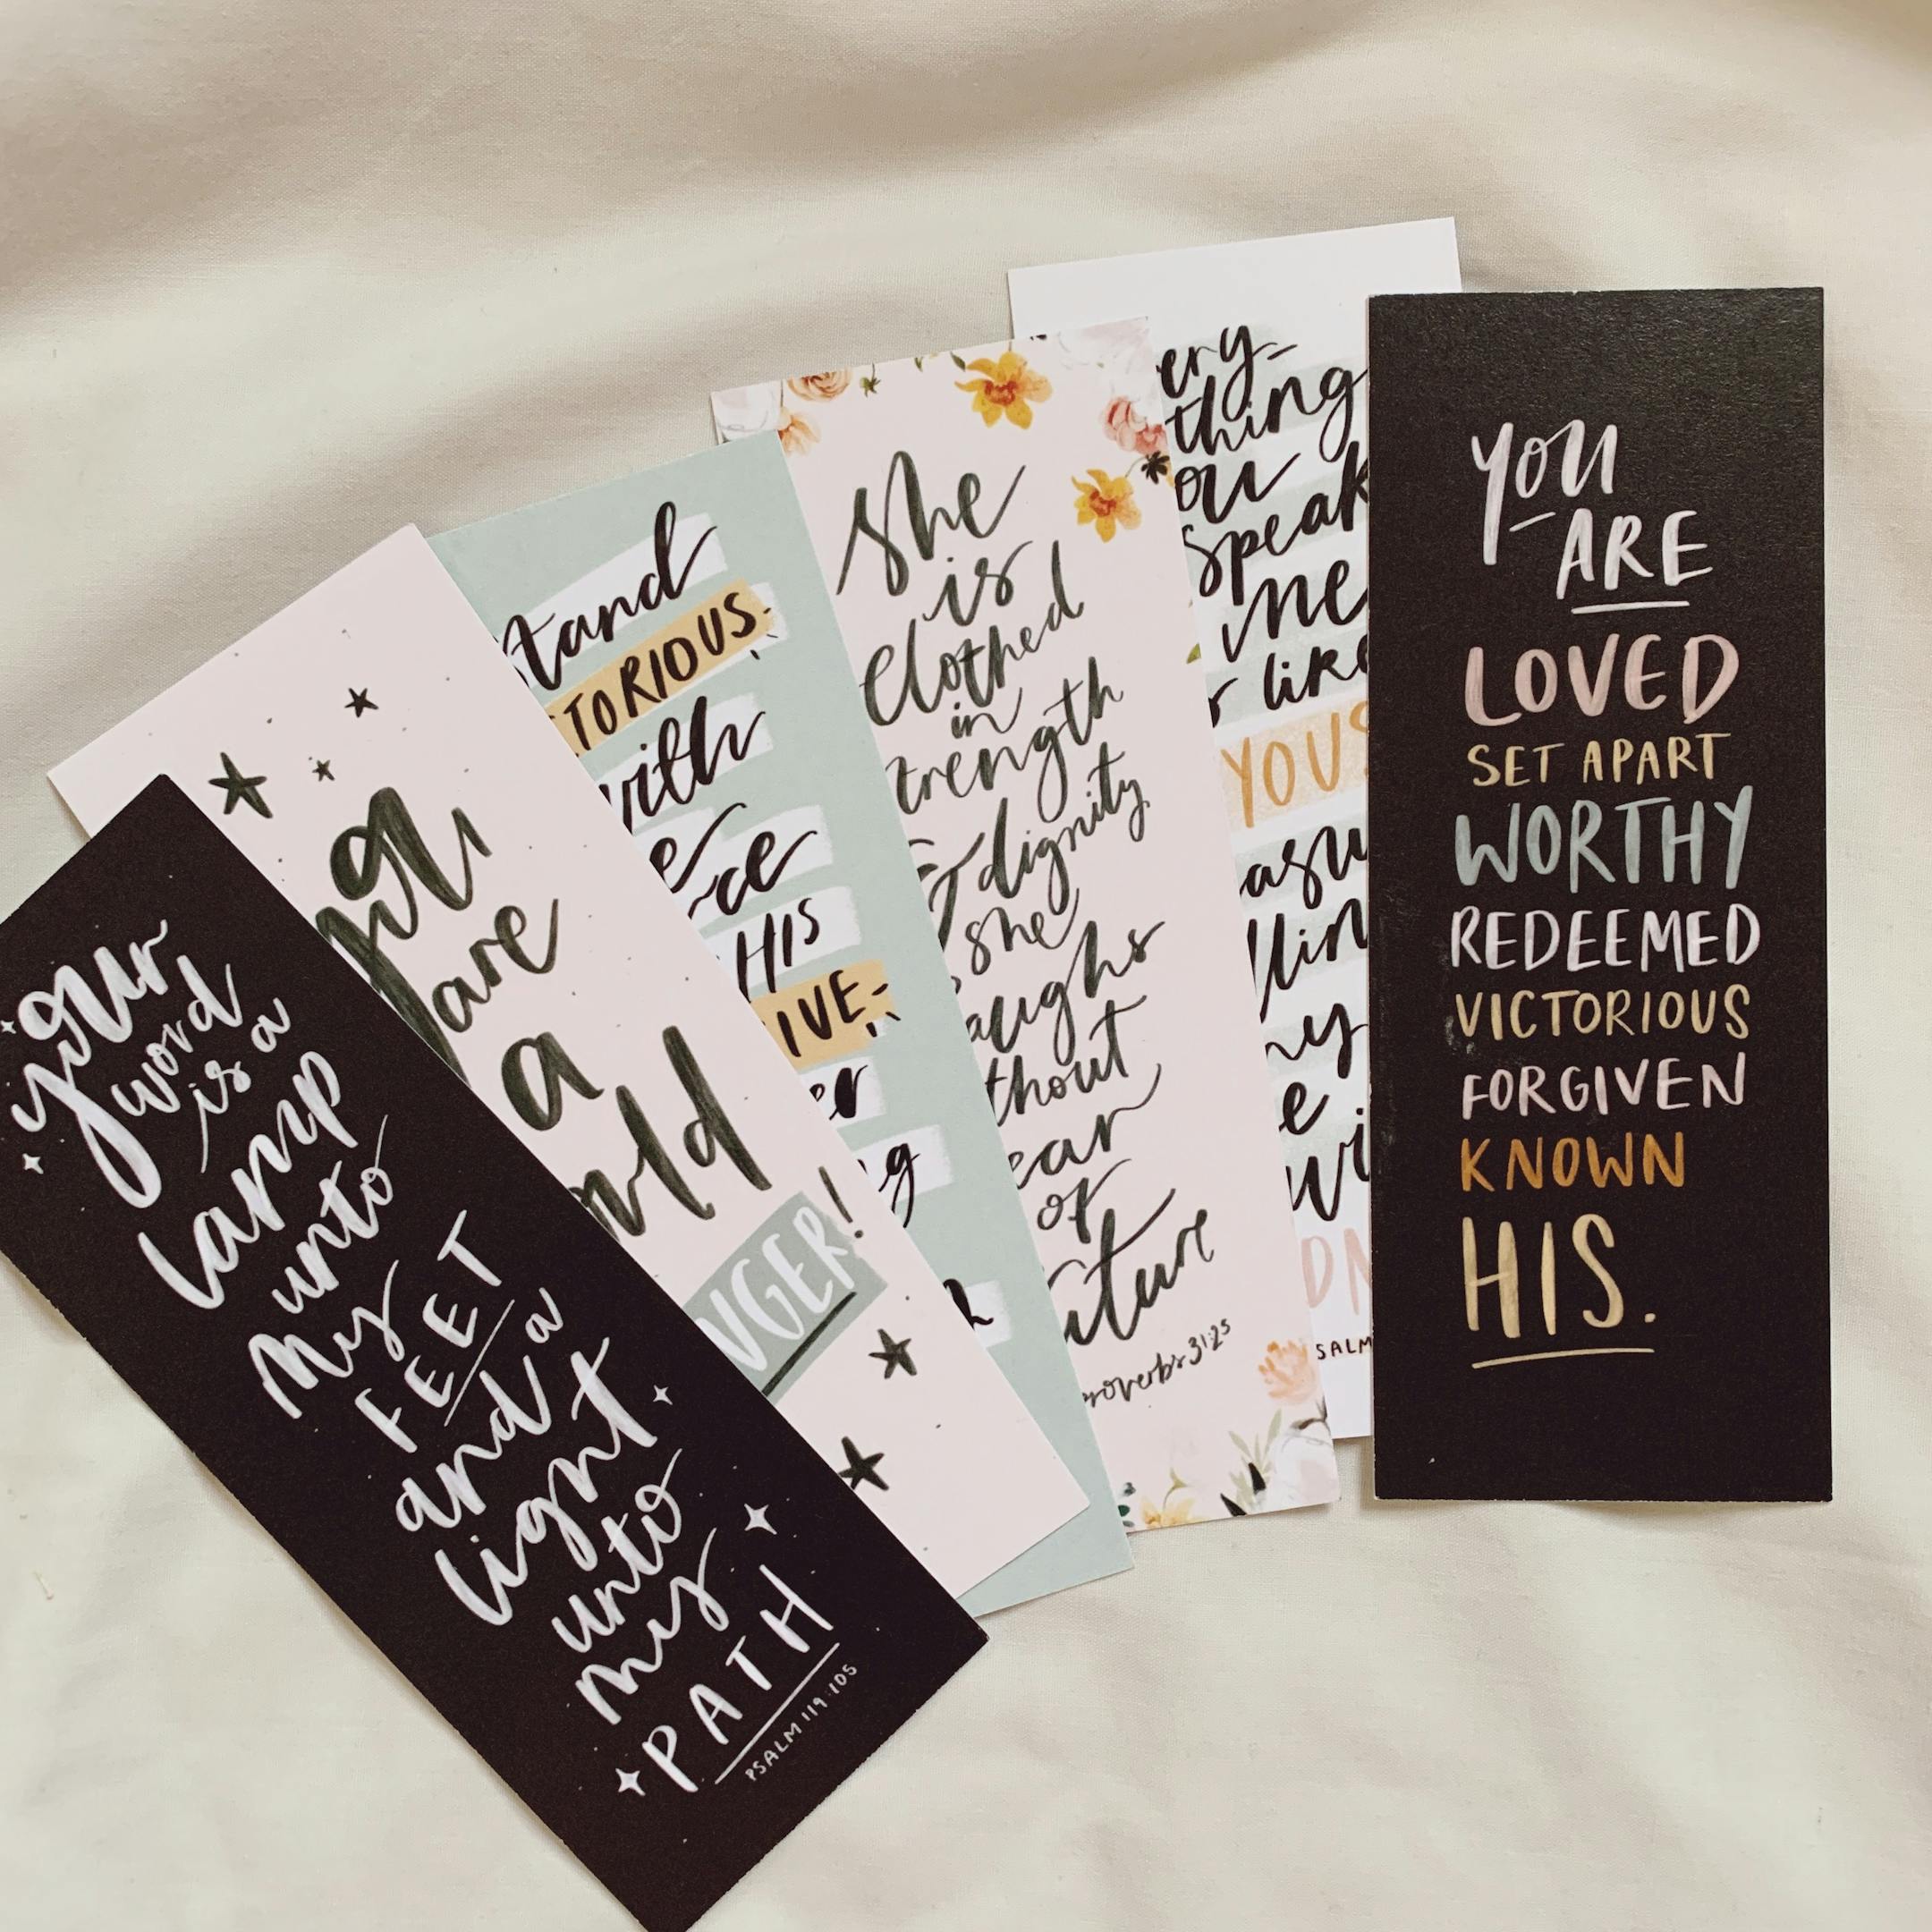 your
word
is a
lamp
unto
my
FEET
and a
light
unto
my
PATH
PSALM 119:105
you
are
a
NGER!
tand
TORIOUS
with
HIS
IVE
she
is
clothed
in
trength
& dignity
she
aughs
thout
ear
of
uture
roverbs 31:25
ery-
thing
ou
speak
me
like
YOUS
asu
llin
my
e
wi
SALM
YOU
ARE
LOVED
SET APART
WORTHY
REDEEMED
VICTORIOUS
FORGIVEN
KNOWN
HIS.